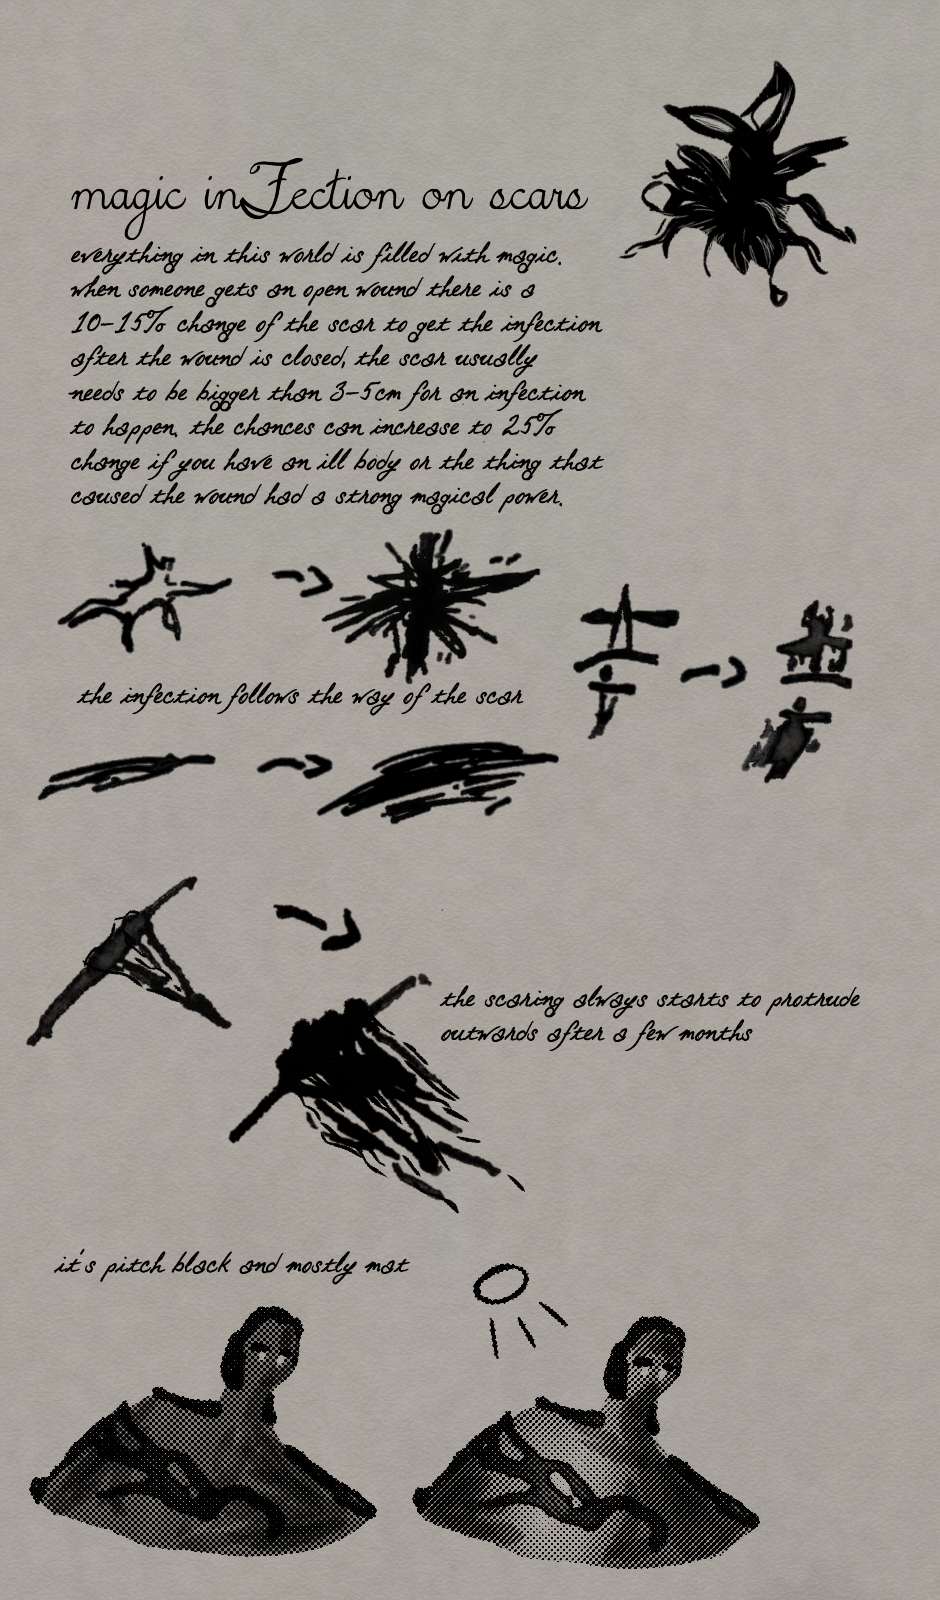 magic inFection on scars
everything in this world is filled with magic.
when someone gets an open wound there is a
10-15% change of the scar to get the infection
after the wound is closed, the scar usually
needs to be bigger than 3-5cm for an infection
to happen. the chances can increase to 25%
change if you have an ill body or the thing that
caused the wound had a strong magical power.
the infection follows the way of the scar
the scaring always starts to protrude
outwards after a few months
it's pitch black and mostly mat